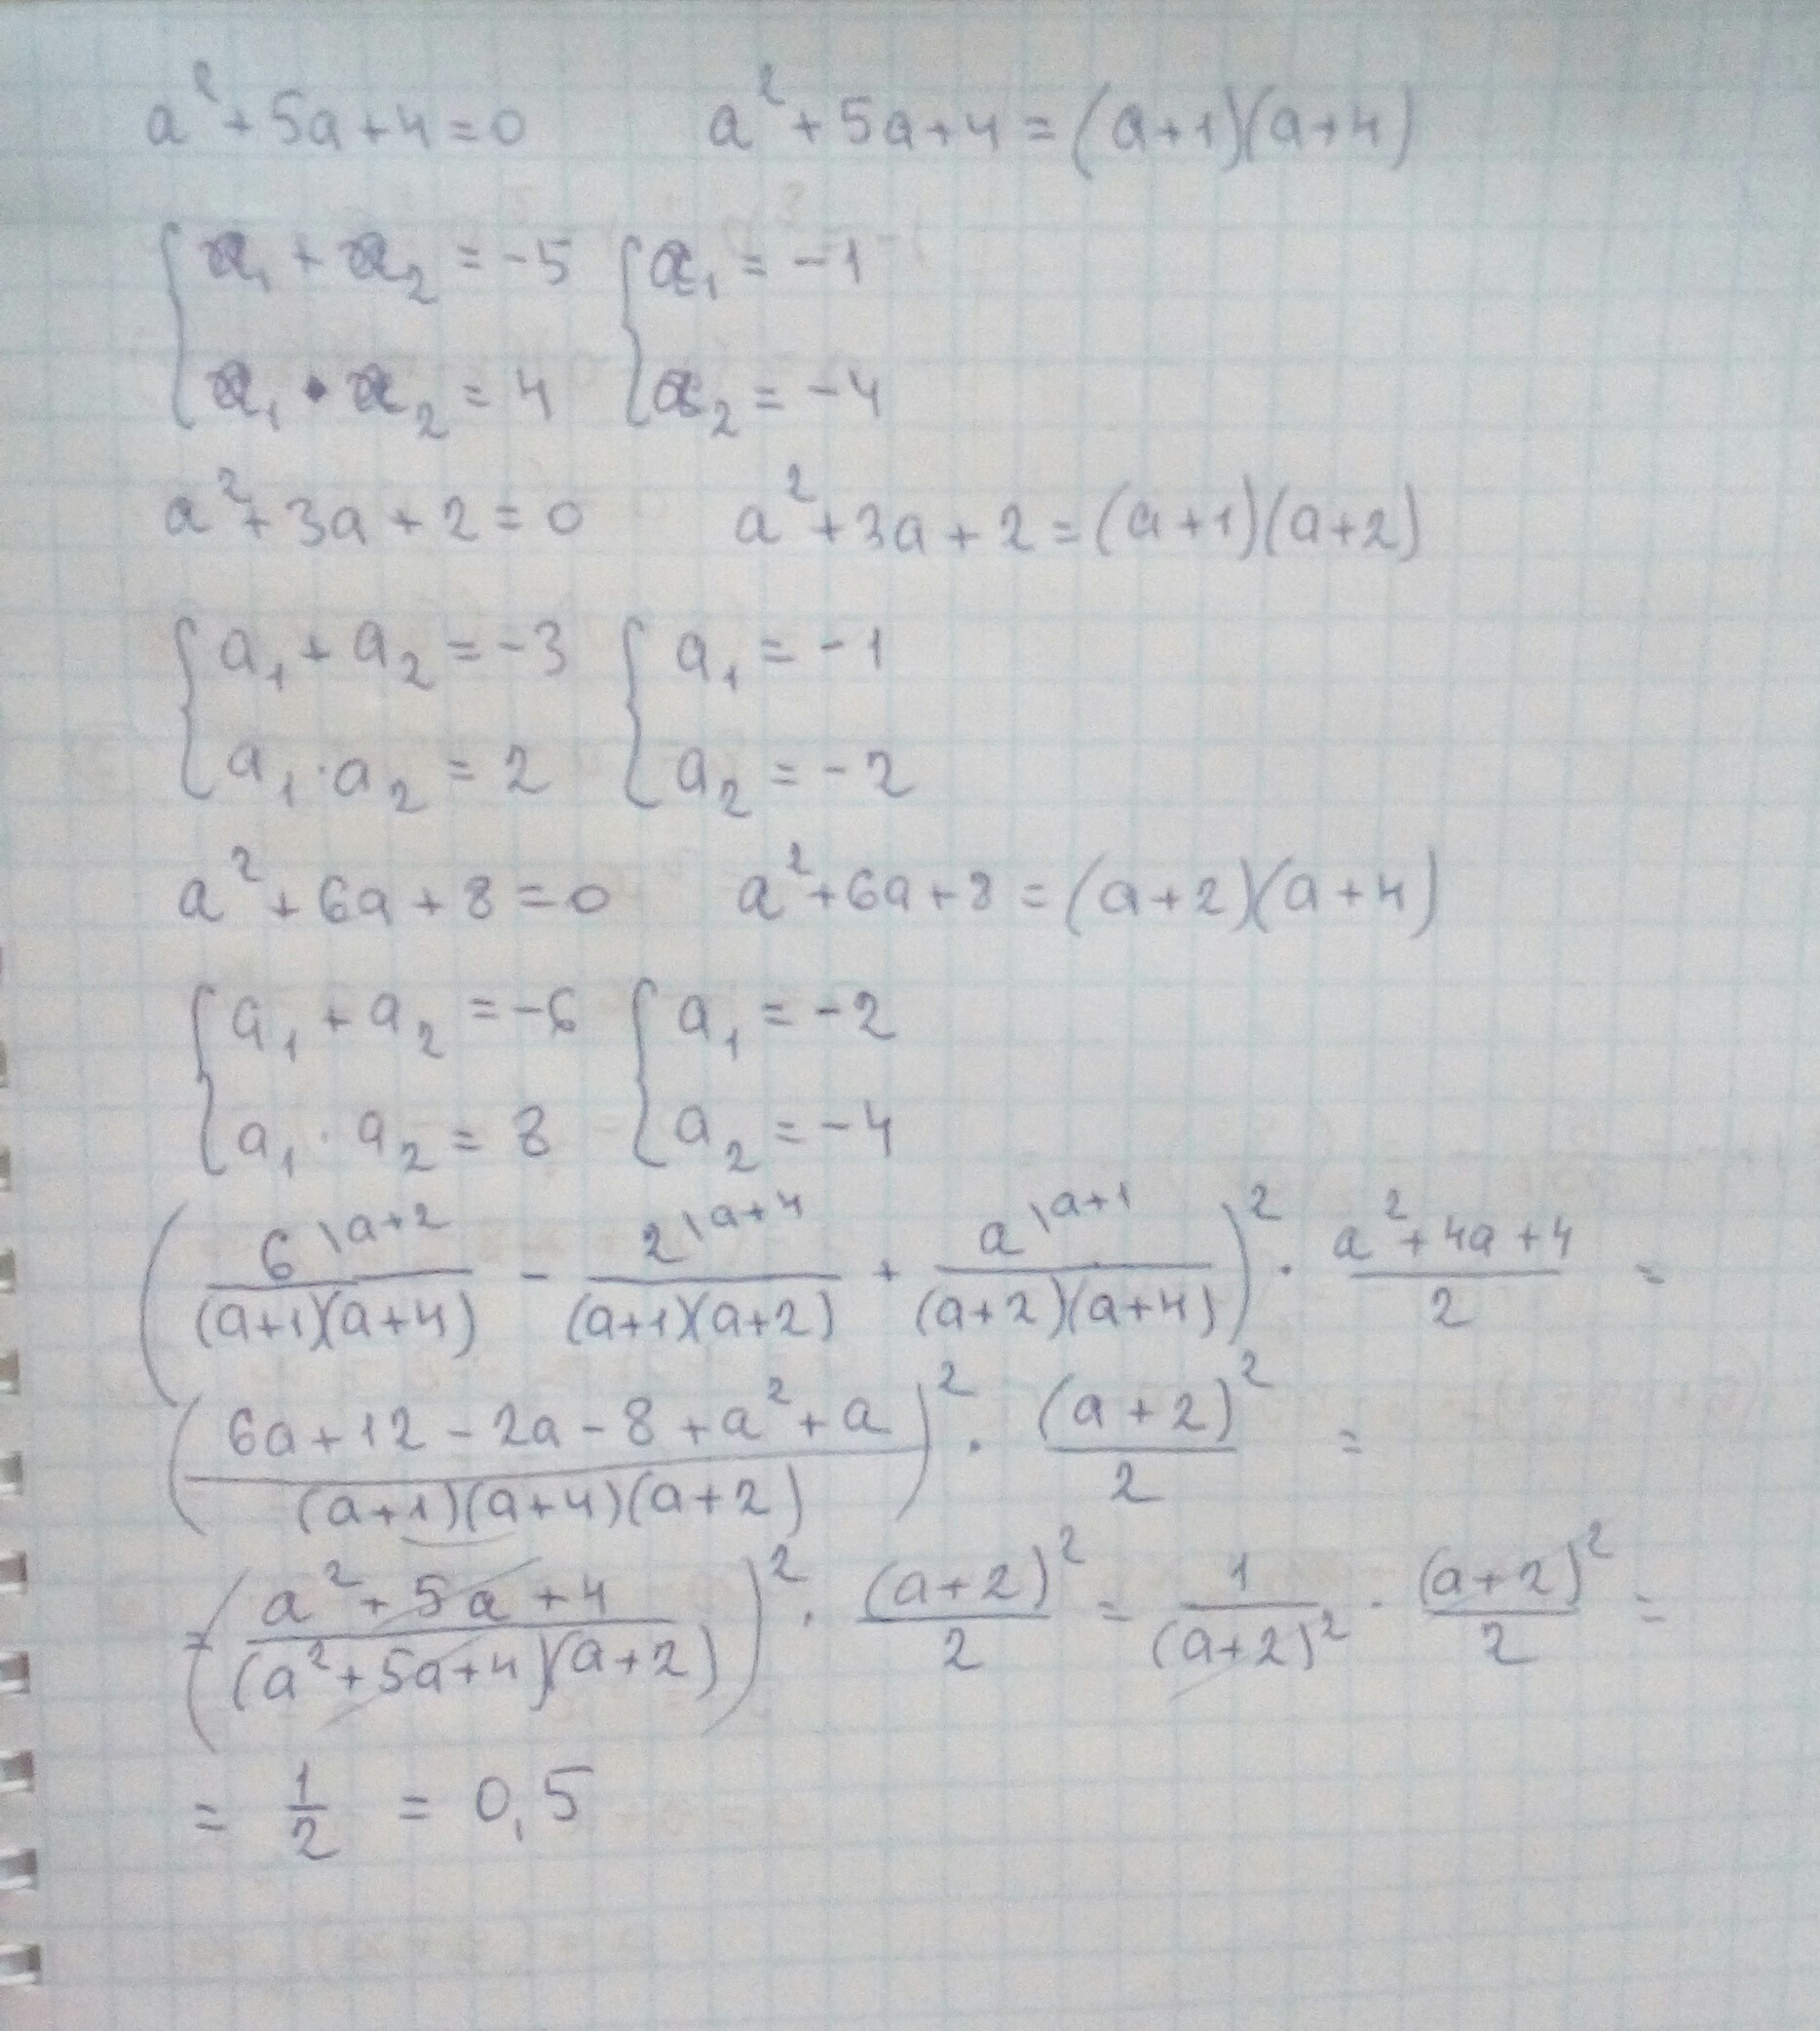 a² + 5a + 4 = 0    a² + 5a + 4 = (a+1)(a+4)
{ a₁ + a₂ = -5  { a₁ = -1
{ a₁ · a₂ = 4  { a₂ = -4
a² + 3a + 2 = 0    a² + 3a + 2 = (a+1)(a+2)
{ a₁ + a₂ = -3  { a₁ = -1
{ a₁ · a₂ = 2  { a₂ = -2
a² + 6a + 8 = 0    a² + 6a + 8 = (a+2)(a+4)
{ a₁ + a₂ = -6  { a₁ = -2
{ a₁ · a₂ = 8  { a₂ = -4
( 6 \a+2 / (a+1)(a+4) - 2 \a+4 / (a+1)(a+2) + a \a+1 / (a+2)(a+4) )² · a² + 4a + 4 / 2 =
( 6a + 12 - 2a - 8 + a² + a / (a+1)(a+4)(a+2) )² · (a+2)² / 2 =
= ( a² + 5a + 4 / (a² + 5a + 4)(a+2) )² · (a+2)² / 2 = 1 / (a+2)² · (a+2)² / 2 =
= 1/2 = 0,5